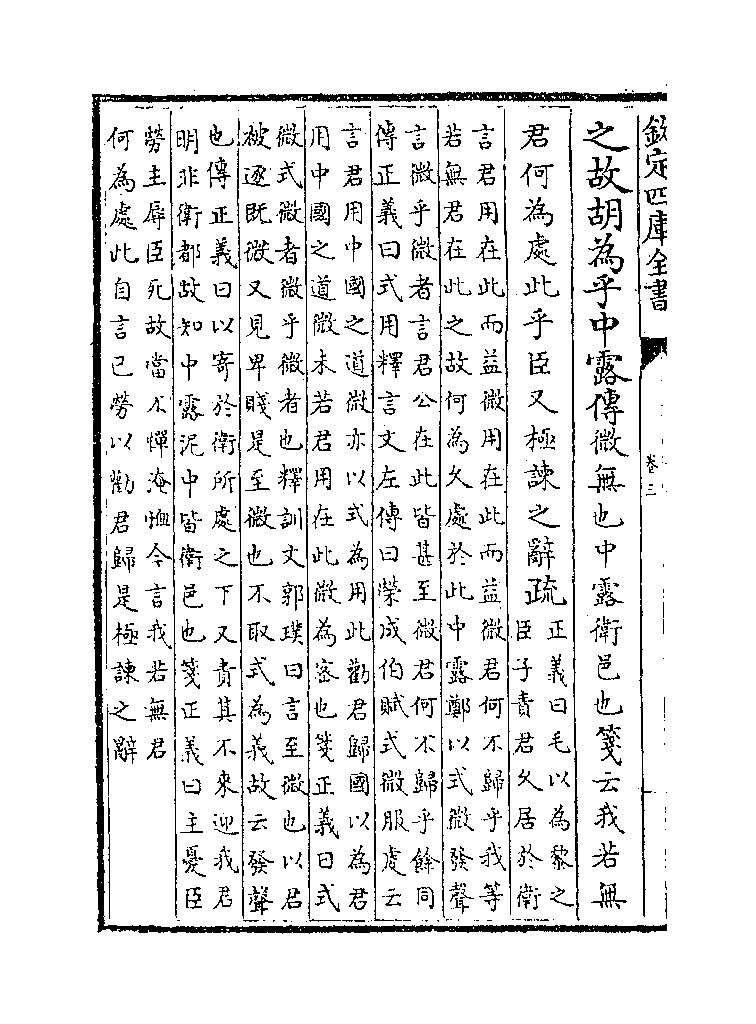 欽定四庫全書
卷三
之故胡為乎中露傳微無也中露衛邑也箋云我若無
君何為處此乎臣又極諫之辭疏
正義曰毛以為黎之
臣子責君久居於衛
言君用在此而益微用在此而益微君何不歸乎我等
若無君在此之故何為久處於此中露鄭以式微發聲
言微乎微者言君公在此皆甚至微君何不歸乎餘同
傳正義曰式用釋言文左傳曰榮成伯賦式微服虔云
言君用中國之道微亦以式為用此勸君歸國以為君
用中國之道微未若君用在此微為密也箋正義曰式
微式微者微乎微者也釋訓文郭璞曰言至微也以君
被逐既微又見卑賤是至微也不取式為義故云發聲
也傳正義曰以寄於衛所處之下又責其不來迎我君
明非衛都故知中露泥中皆衛邑也箋正義曰主憂臣
勞主辱臣死故當不憚淹恤今言我若無君
何為處此自言己勞以勸君歸是極諫之辭